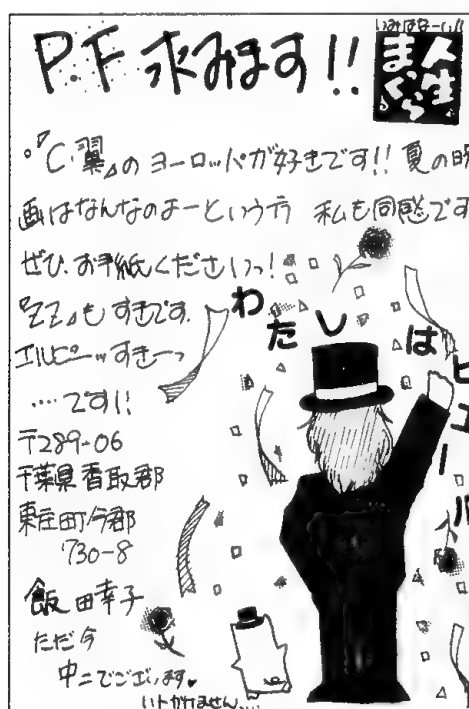 P.F 求みます!!
いみはなーい!!
人生
まっくら
。『C・翼』の ヨーロッパが好きです!! 夏の映
画はなんなのよーという方 私も同感です
ぜひ、お手紙くださいっ!
『ZZ』もすきです。
エルピーッすきーっ
‥‥です!!
〒289-06
千葉県香取郡
東庄町今郡
730-8
飯田幸子
ただ今
中二でございます♥
いトかけません....
わたしはピエール